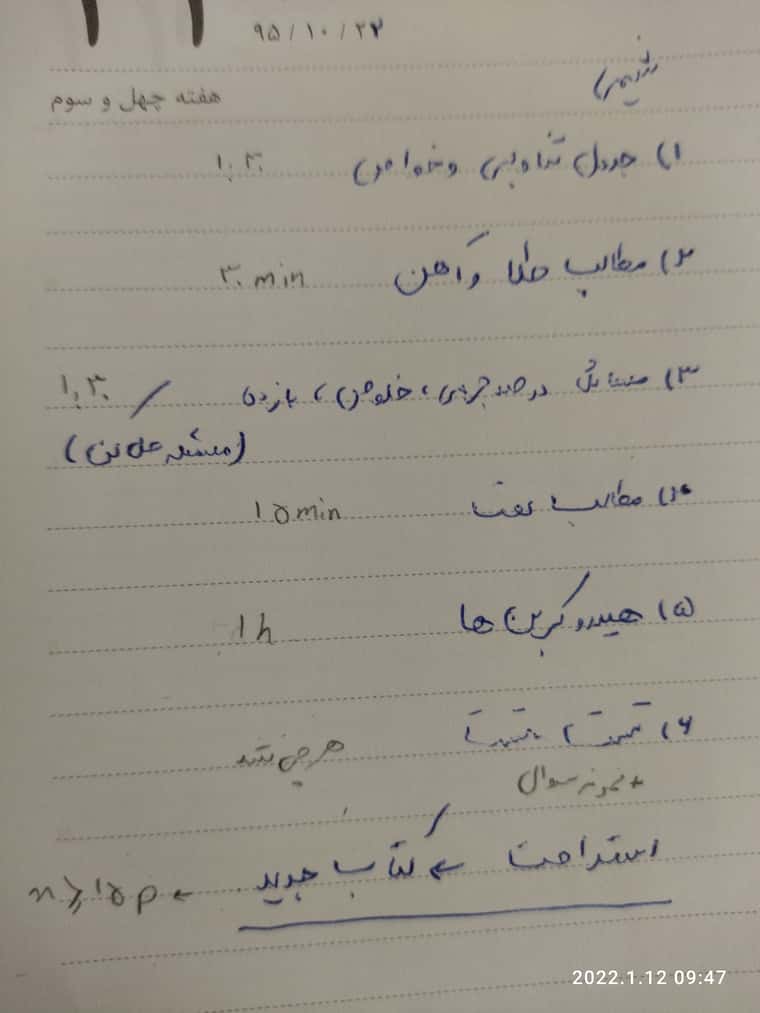 ۹۵/۱۰/۲۳
هفته چهل و سوم
شیمی
۱) جدول تناوبی و خواص ۱,۳۰
۲) مطالب طلا و آهن ۳۰ min
۳) مسائل درصد جرمی، خلوص، بازده ۱,۳۰
(مسئله حل کن)
۴) مطالب نفت ۱۵ min
۵) هیدروکربن ها ۱ h
۶) تست، تست، هر چی شد
+ نمونه سوال
استراحت ← کتاب جدید ← n ≥ ۱۵ p
2022.1.12 09:47